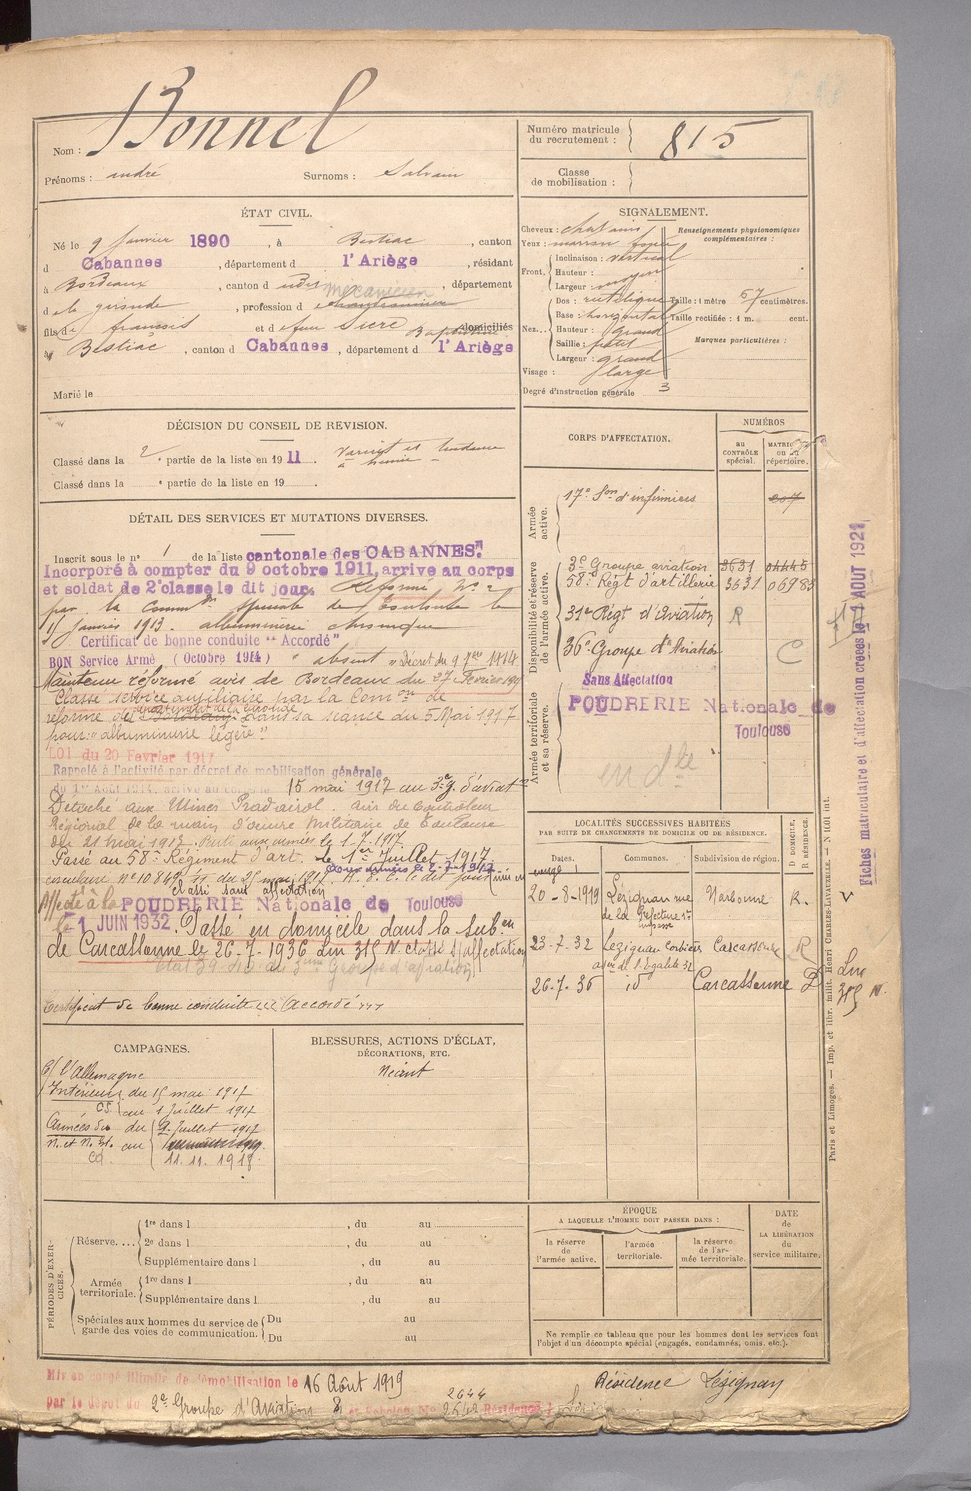 Nom : Bonnel
Prénoms : andré Surnoms : Salvain
Numéro matricule du recrutement : 815
Classe de mobilisation :
ÉTAT CIVIL.
Né le 9 Janvier 1890, à Bestiac, canton
d Cabannes, département d l'Ariège, résidant
à Bordeaux, canton d udit, département
d e la gironde, profession d mécanicien
fils de françois et de feue Sicre Baptistine domiciliés
à Bestiac, canton d Cabannes, département d l'Ariège
Marié le
SIGNALEMENT.
Cheveux : chatains
Yeux : marron foncé
Front. Inclinaison : vertical
Hauteur : moyen
Largeur : moyen
Nez. Dos : rectiligne
Base : horizontal
Hauteur : Grand
Saillie : petit
Largeur : grand
Visage : large
Degré d'instruction générale 3
Renseignements physionomiques complémentaires :
Taille : 1 mètre 57 centimètres.
Taille rectifiée : 1 m. cent.
Marques particulières :
DÉCISION DU CONSEIL DE REVISION.
Classé dans la 2e partie de la liste en 1911.
Classé dans la e partie de la liste en 19
DÉTAIL DES SERVICES ET MUTATIONS DIVERSES.
Inscrit sous le n° 1 de la liste cantonale des CABANNES.
Incorporé à compter du 9 octobre 1911, arrive au corps
et soldat de 2e classe le dit jour. Réformé No 2
par la Common spéciale de Toulouse le
15 Janvier 1913. albuminurie chronique
Certificat de bonne conduite "Accordé"
BON Service Armé (Octobre 1914) "absent" Décret du 9 7bre 1914
Maintenu réformé avis de Bordeaux du 27 Fevrier 1915
Classé service auxiliaire par la Comon de
réforme de dans sa séance du 5 Mai 1917
pour: "albuminurie légère"
LOI du 20 Fevrier 1917
Rappelé à l'activité par décret de mobilisation générale
du 1er Août 1914, arrivé au corps le 15 mai 1917 au 3e g. d'aviaton
Détaché aux Usines Pradairol. avis du Controleur
Régional de la main d'œuvre militaire de Toulouse
du 21 mai 1917.
Passé au 58e Régiment d'art. le 1er Juillet 1917
Classé sans affectation
Affecté à la POUDRERIE Nationale de Toulouse
le 1 JUIN 1932. Passé en domicile dans la sub.on
de Carcassonne le 26-7-1936 Lm 315 N. classé S/affectation
Certificat de bonne conduite "Accordé"
CORPS D'AFFECTATION.
NUMÉROS
AU CONTRÔLE SPÉCIAL.
MATRICULE OU AU RÉPERTOIRE.
Armée active.
17e Son d'infirmiers 207
Disponibilité et réserve de l'armée active.
3e Groupe aviation 3631 04445
58e Régt d'artillerie 3631 06983
31e Régt d'Aviation R
36e Groupe d'Aviation C
Armée territoriale et sa réserve.
Sans Affectation
POUDRERIE Nationale de
Toulouse
LOCALITÉS SUCCESSIVES HABITÉES
PAR SUITE DE CHANGEMENTS DE DOMICILE OU DE RÉSIDENCE.
Dates. Communes. Subdivision de région. D DOMICILE. R RÉSIDENCE.
20-8-1919 Lézignan rue Narbonne R.
23-7-32 Lezignan Corbières Carcassonne R
av. de l'Egalité 32
26-7-36 id Carcassonne D
Lm 315 N.
CAMPAGNES.
C/ l'Allemagne
Intérieur du 15 mai 1917
CS. au 1 Juillet 1917
Armées du du 2 Juillet 1917
N. et N. Et. au
11.11.1918.
BLESSURES, ACTIONS D'ÉCLAT,
DÉCORATIONS, ETC.
Néant
PÉRIODES D'EXERCICES.
Réserve.... 1re dans l , du au
2e dans l , du au
Supplémentaire dans l , du au
Armée territoriale. 1re dans l , du au
Supplémentaire dans l , du au
Spéciales aux hommes du service de garde des voies de communication. Du au
Du au
ÉPOQUE
A LAQUELLE L'HOMME DOIT PASSER DANS :
la réserve de l'armée active.
l'armée territoriale.
la réserve de l'armée territoriale.
DATE de LA LIBÉRATION du service militaire.
Ne remplir ce tableau que pour les hommes dont les services font
l'objet d'un décompte spécial (engagés, condamnés, omis, etc.).
Mis en congé illimité de démobilisation le 16 Août 1919
par le dépôt du 2e Groupe d'Aviation
Résidence Lézignan
Fiches matriculaire et d'affectation créées le AOUT 1921
Paris et Limoges. — Imp. et libr. milit. Henri CHARLES-LAVAUZELLE.